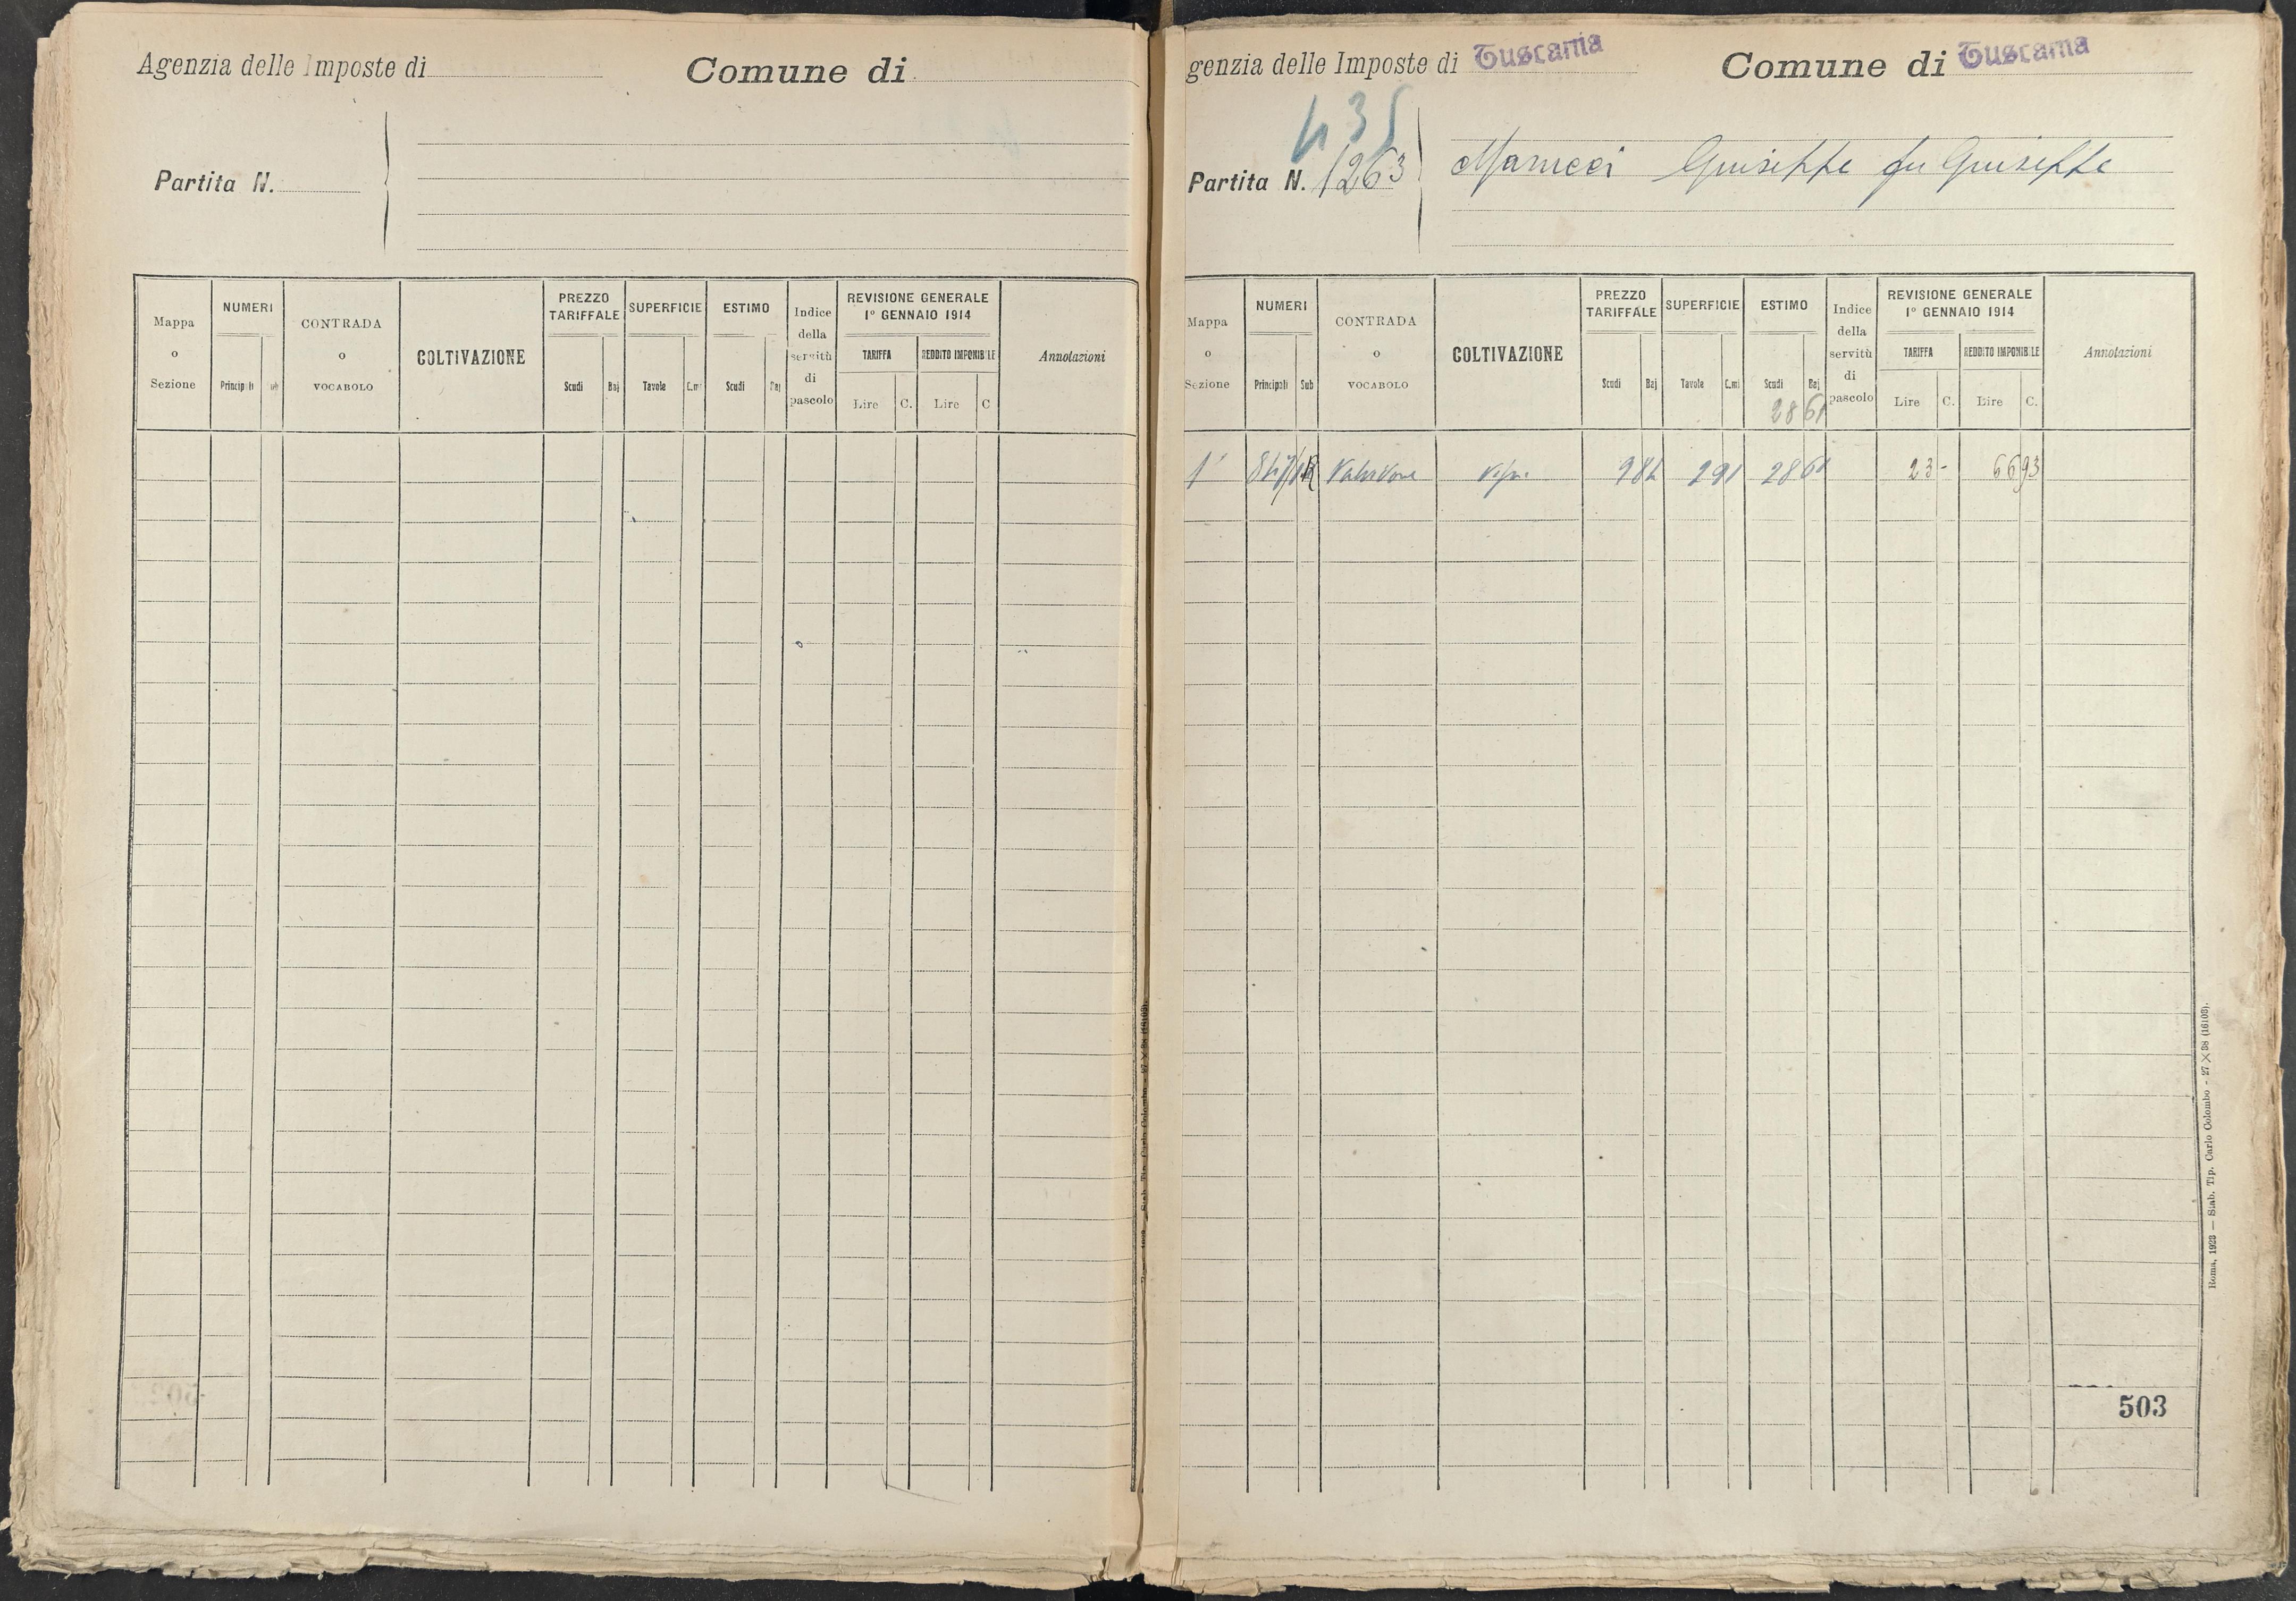 Agenzia delle Imposte di
Comune di
Partita N.
Mappa o Sezione
NUMERI
Principali
CONTRADA o VOCABOLO
COLTIVAZIONE
PREZZO TARIFFALE
Scudi Baj
SUPERFICIE
Tavole C.mi
ESTIMO
Scudi Baj
Indice della servitù di pascolo
REVISIONE GENERALE
1° GENNAIO 1914
TARIFFA
Lire C.
REDDITO IMPONIBILE
Lire C
Annotazioni
genzia delle Imposte di Tuscania
Comune di Tuscania
435
Partita N. 1263
Giuseppe fu Giuseppe
Mappa o Sezione
NUMERI
Principali Sub
CONTRADA o VOCABOLO
COLTIVAZIONE
PREZZO TARIFFALE
Scudi Baj
SUPERFICIE
Tavole C.mi
ESTIMO
Scudi Baj
28 61
Indice della servitù di pascolo
REVISIONE GENERALE
1° GENNAIO 1914
TARIFFA
Lire C.
REDDITO IMPONIBILE
Lire C.
Annotazioni
1 2 91 28 61 23 - 66 93
503
Roma, 1923 — Stab. Tip. Carlo Colombo - 27 × 38 (16103).